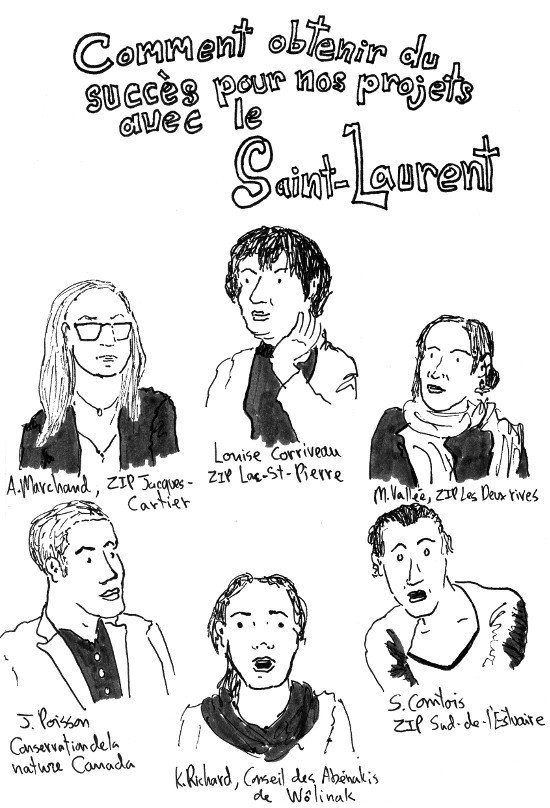 Comment obtenir du
succès pour nos projets
avec le
Saint-Laurent
A. Marchand, ZIP Jacques-
Cartier
Louise Corriveau
ZIP Lac-St-Pierre
M. Vallée, ZIP Les Deux rives
J. Poisson
Conservation de la
nature Canada
K. Richard, Conseil des Abénakis
de Wôlinak
S. Comtois
ZIP Sud-de-l'Estuaire